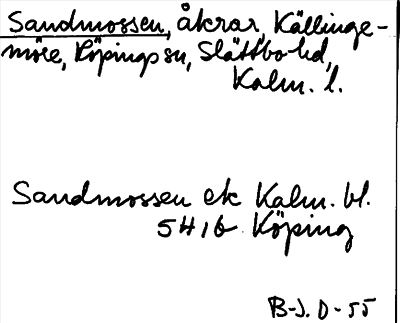 Sandmossen, åkrar, Källinge-
möre, Köpings sn, Slättbo hd,
Kalm. l.
Sandmossen ek Kalm. bl.
5416 Köping
B-J. D-55